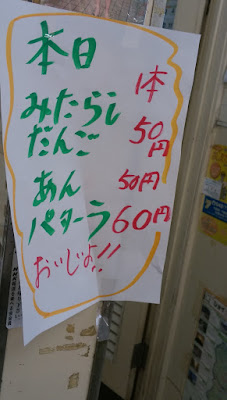 本日
みたらし 1本
だんご 50円
あん 50円
パターラ 60円
おいじよ!!